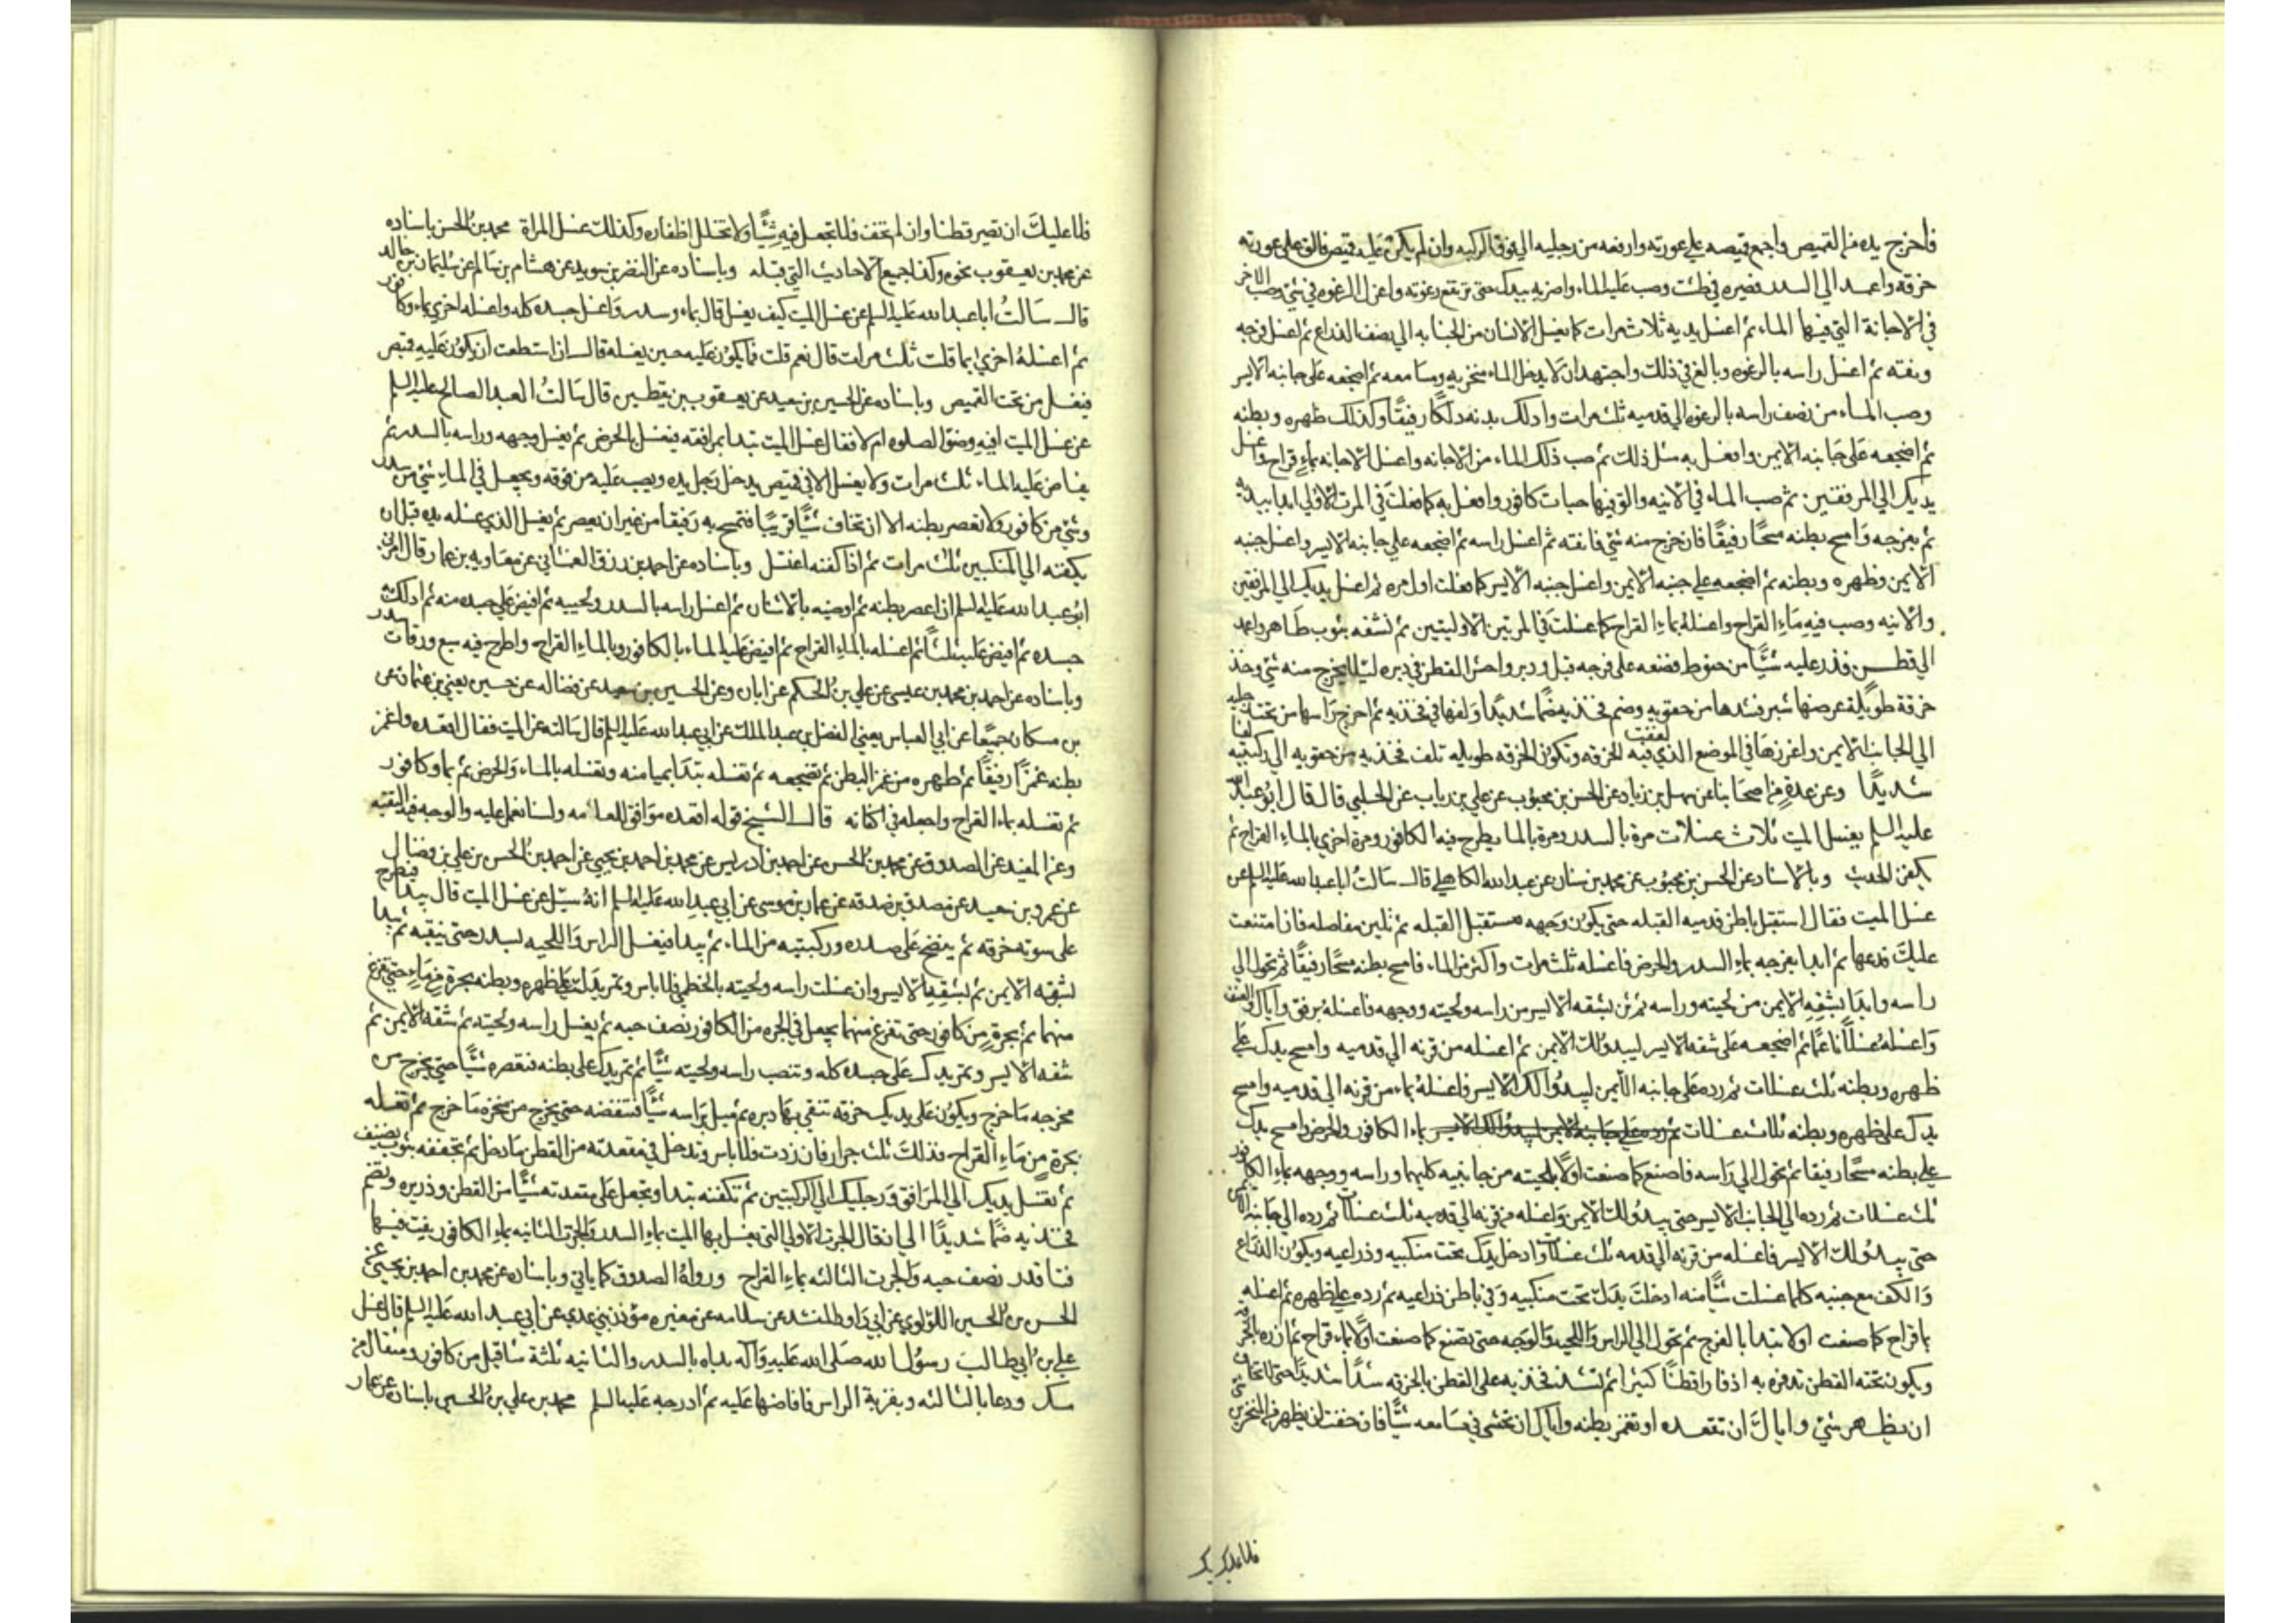 فاخرج يده من القميص واجمع قميصه على عورته وارفعه من رجليه الى فوق الركبه وان لم يكن عليه قميص فالق على عورته
خرقه واعمد الي السدر فصيره في طشت وصب عليه الماء واضربه بيدك حتى ترتفع رغوته واعزل الرغوه في شئ وصب الاخر
في الاجانة التي فيها الماء ثم اغسل يديه ثلاث مرات كما يغسل الانسان من الجنابه الي نصف الذراع ثم اغسل فرجه
ونقه ثم اغسل راسه بالرغوه وبالغ في ذلك واجتهد ان لا يدخل الماء منخريه ومسامعه ثم اضجعه على جانبه الايسر
وصب الماء من نصف راسه بالرغوه الي قدميه ثلث مرات وادلك بدنه دلكا رفيقا وكذلك ظهره وبطنه
ثم اضجعه على جانبه الايمن وافعل به مثل ذلك ثم صب ذلك الماء من الاجانه واغسل الاجانه بماء قراح واغسل
يديك الي المرفقين ثم صب الماء في الانيه والق فيها حبات كافور وافعل به كما فعلت في المرت الاولي ابدا بيديه
ثم بفرجه وامسح بطنه مسحا رفيقا فان خرج منه شئ فانقه ثم اغسل راسه ثم اضجعه علي جانبه الايسر واغسل جنبه
الايمن وظهره وبطنه ثم اضجعه علي جنبه الايمن واغسل جنبه الايسر كما فعلت اول مره ثم اغسل يديك الي المرفقين
والانيه وصب فيه ماء القراح واغسله بماء القراح كما غسلت في المرتين الاوليتين ثم نشفه بثوب طاهر واعمد
الي قطن فذر عليه شيئا من حنوط فضعه على فرجه قبل ودبر واحش القطن في دبره ليلا يخرج منه شئ وخذ
خرقة طويلة عرضها شبر فشدها من حقويه وضم فخذيه ضما شديدا ولفها في فخذيه ثم اخرج راسها من تحت رجليه
الي الجانب الايمن واغرزها في الموضع الذي لففت فيه الخرقه وتكون الخرقه طويله تلف فخذيه من حقويه الي ركبتيه لفا
شديدا وعن عدة من اصحابنا عن سهل بن زياد عن الحسن بن محبوب عن علي بن رياب عن الحلبي قال قال ابو عبد الله
عليه السلم يغسل الميت ثلاث غسلات مرة بالسدر ومرة بالماء يطرح فيه الكافور ومرة اخري بالماء القراح ثم
يكفن الحديث وبالاسناد عن الحسن بن محبوب عن محمد بن سنان عن عبد الله الكاهلي قال سالت ابا عبد الله عليه السلم عن
غسل الميت فقال استقبل باطن قدميه القبله حتى يكون وجهه مستقبل القبله ثم تلين مفاصله فان امتنعت
عليك فدعها ثم ابدا بفرجه بماء السدر والحرض فاغسله ثلث مرات واكثر من الماء فامسح بطنه مسحا رفيقا ثم تحول الي
راسه وابدا بشقه الايمن من لحيته وراسه ثم ثن بشقه الايسر من راسه ولحيته ووجهه فاغسله برفق واياك والعنف
واغسله غسلا ناعما ثم اضجعه على شقه الايسر ليبدو لك الايمن ثم اغسله من قرنه الي قدميه وامسح يدك علي
ظهره وبطنه ثلث غسلات ثم رده على جانبه الايمن ليبدو لك الايسر فاغسله بماء من قرنه الي قدميه وامسح
يدك على ظهره وبطنه ثلاث غسلات ثم رده علي جانبه الايمن ليبدو لك الايسر بماء الكافور والحرض وامسح يدك
علي بطنه مسحا رفيقا ثم تحول الي راسه فاصنع كما صنعت اولا بلحيته من جانبيه كليهما وراسه ووجهه بماء الكافور
ثلث غسلات ثم رده الي الجانب الايسر حتى يبدو لك الايمن واغسله من قرنه الي قدميه ثلث غسلات ثم رده الي جانبه الايمن
حتى يبدو لك الايسر فاغسله من قرنه الي قدمه ثلث غسلات وادخل يدك تحت منكبيه وذراعيه ويكون الذراع
والكف مع جنبه كلما غسلت شيئا منه ادخلت يدك تحت منكبيه وفي باطن ذراعيه ثم رده علي ظهره ثم اغسله
بماء قراح كما صنعت اولا تبدا بالفرج ثم تحول الي الراس واللحيه والوجه حتى تصنع كما صنعت اولا بماء قراح ثم ازره بالخرقه
ويكون تحته القطن تذفره به اذفارا قطنا كثيرا ثم تشد فخذيه على القطن بالخرقه شدا شديدا حتى لا تخاف
ان يظهر شئ واياك ان تقعده او تغمز بطنه واياك ان تحشى في مسامعه شيئا فان خفت ان يظهر من المنخرين شئ
فلا عليك
فلا عليك ان تصير قطنا وان لم تخف فلا تجعل فيه شيئا ولا تخلل اظفاره وكذلك غسل المراة محمد بن الحسن باسناده
عن محمد بن يعقوب نحوه وكذا جميع الاحاديث التي قبله وباسناده عن النضر بن سويد عن هشام بن سالم عن سليمان بن خالد
قال سالت ابا عبد الله عليه السلم عن غسل الميت كيف يغسل قال بماء وسدر واغسل جسده كله واغسله اخري بماء وكافور
ثم اغسله اخري بماء قلت ثلث مرات قال نعم قلت فما يكون عليه حين يغسله قال ان استطعت ان يكون عليه قميص
فيغسل من تحت القميص وباسناده عن الحسين بن سعيد عن يعقوب بن يقطين قال سالت العبد الصالح عليه السلم
عن غسل الميت افيه وضوء الصلوه ام لا فقال غسل الميت تبدا بمرافقه فيغسل بالحرض ثم يغسل وجهه وراسه بالسدر ثم
يفاض عليه الماء ثلث مرات ولا يغسل الا في قميص يدخل رجل يده ويصب عليه من فوقه ويجعل في الماء شئ من سدر
وشئ من كافور ولا يعصر بطنه الا ان تخاف شيئا قريبا فتمسح به رفيقا من غير ان يعصر ثم يغسل الذي غسله يده قبل ان
يكفنه الي المنكبين ثلث مرات ثم اذا كفنه اغتسل وباسناده عن احمد بن رزق الغشاني عن معاويه بن عمار قال امرني
ابو عبد الله عليه السلم ان اعصر بطنه ثم اوضيه بالاشنان ثم اغسل راسه بالسدر ولحييه ثم افيض علي جسده منه ثم ادلك به
جسده ثم افيض عليه ثلثا ثم اغسله بالماء القراح ثم افيض عليه الماء بالكافور وبالماء القراح واطرح فيه سبع ورقات سدر
وباسناده عن احمد بن محمد بن عيسى عن علي بن الحكم عن ابان وعن الحسين بن سعيد عن فضاله عن حسين يعني بن عثمان عن
بن مسكان جميعا عن ابي العباس يعني الفضل بن عبد الملك عن ابي عبد الله عليه السلم قال سالته عن الميت فقال اقعده واغمز
بطنه غمزا رفيقا ثم طهره من غمز البطن ثم تضجعه ثم تغسله تبدا بميامنه وتغسله بالماء والحرض ثم بماء وكافور
ثم تغسله بماء القراح واجعله في اكفانه قال الشيخ قوله اقعده موافق للعامه ولسنا نعمل عليه والوجه فيه التقيه
وعن المفيد عن الصدوق عن محمد بن الحسن عن احمد بن ادريس عن محمد بن احمد بن يحيى عن احمد بن الحسن بن علي بن فضال
عن عمرو بن سعيد عن مصدق بن صدقه عن عمار بن موسى عن ابي عبد الله عليه السلم انه سئل عن غسل الميت قال يبدا فيطرح
على سوته خرقه ثم ينضح على صدره وركبتيه من الماء ثم يبدا فيغسل الراس واللحيه بسدر حتى ينقيه ثم يبدا
بشقه الايمن ثم بشقه الايسر وان غسلت راسه ولحيته بالخطمي فلا باس وتمر يدك على ظهره وبطنه بجرة من ماء حتى تفرغ
منهما ثم بجرة من كافور حتى تفرغ منهما يجعل في الجره من الكافور نصف حبه ثم يغسل راسه ولحيته ثم شقه الايمن ثم
شقه الايسر وتمر يدك على جسده كله وتنصب راسه ولحيته شيئا ثم تمر يدك على بطنه فتعصره شيئا حتى يخرج من
مخرجه ما خرج ويكون على يديك خرقه تنقي بها دبره ثم ميل براسه شيئا فتنفضه حتى يخرج من منخره ما خرج ثم تغسله
بجرة من ماء القراح فذلك ثلث جرار فان زدت فلا باس وتدخل في مقعدته من القطن ما دخل ثم تجففه بثوب نضيف
ثم تغتسل يديك الي المرافق ورجليك الي الركبتين ثم تكفنه تبدا وتجعل على مقعدته شيئا من القطن وذريره وتضم
فخذيه ضما شديدا الي ان قال الجرة الاولي التي يغسل بها الميت بماء السدر والجرة الثانيه بماء الكافور يفت فيها
فتا قدر نصف حبه والجرت الثالثه بماء القراح ورواه الصدوق كما ياتي وباسناده عن محمد بن احمد بن يحيى عن
الحسن بن الحسين اللؤلوي عن ابي داود المنشد عن سلامه عن مغيره مؤذن بني عدي عن ابي عبد الله عليه السلم قال غسل
علي بن ابي طالب رسول الله صلى الله عليه وآله بداه بالسدر والثانيه ثلثة مثاقيل من كافور ومثقال من
مسك ودعا بالثالثه وبقربة الراس فافاضها عليه ثم ادرجه عليه السلم محمد بن علي بن الحسين باسناده عن عمار